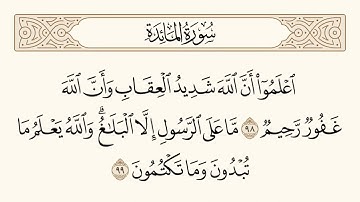 سُورَةُ المَائِدَة
ٱعْلَمُوٓا۟ أَنَّ ٱللَّهَ شَدِيدُ ٱلْعِقَابِ وَأَنَّ ٱللَّهَ
غَفُورٌۭ رَّحِيمٌۭ ٩٨ مَّا عَلَى ٱلرَّسُولِ إِلَّا ٱلْبَلَـٰغُ ۗ وَٱللَّهُ يَعْلَمُ مَا
تُبْدُونَ وَمَا تَكْتُمُونَ ٩٩